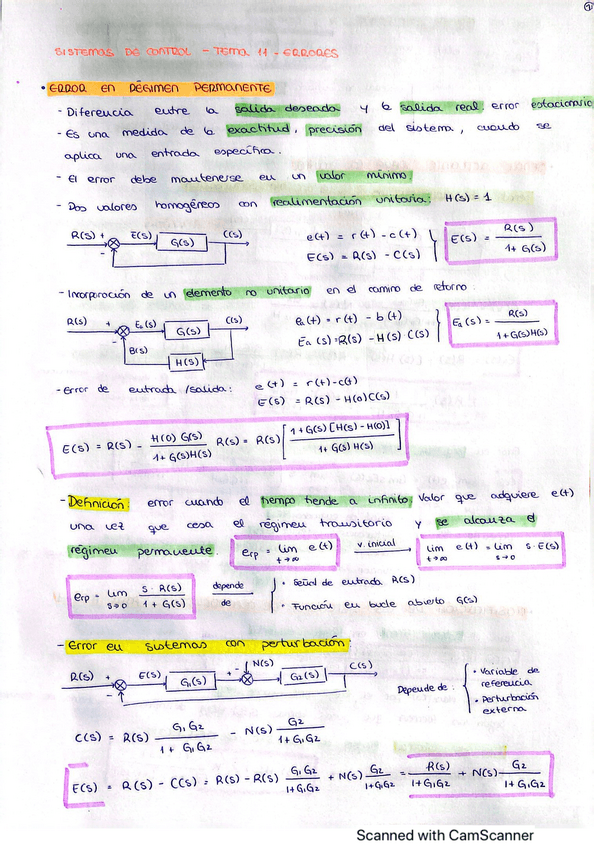 1
SISTEMAS DE CONTROL - TEMA 11 - ERRORES
• ERROR EN RÉGIMEN PERMANENTE
- Diferencia entre la salida deseada y la salida real, error estacionario
- Es una medida de la exactitud, precisión del sistema, cuando se
aplica una entrada específica.
- El error debe mantenerse en un valor mínimo
- Dos valores homogéneos con realimentación unitaria: H(s) = 1
R(s) + - E(s) G(s) C(s)
e(t) = r(t) - c(t)
E(s) = R(s) - C(s)
E(s) = R(s) / 1 + G(s)
- Incorporación de un elemento no unitario en el camino de retorno:
R(s) + - Ea(s) G(s) C(s)
B(s) H(s)
ea(t) = r(t) - b(t)
Ea(s) = R(s) - H(s)·C(s)
Ea(s) = R(s) / 1 + G(s)H(s)
- Error de entrada/salida: e(t) = r(t) - c(t)
E(s) = R(s) - H(0)C(s)
E(s) = R(s) - H(0) G(s) / 1 + G(s)H(s) R(s) = R(s) [ 1 + G(s)[H(s) - H(0)] / 1 + G(s)H(s) ]
- Definición: error cuando el tiempo tiende a infinito, valor que adquiere e(t)
una vez que cesa el régimen transitorio y se alcanza el
régimen permanente. erp = lim t→∞ e(t) v. inicial lim t→∞ e(t) = lim s→0 s·E(s)
erp = lim s→0 s·R(s) / 1 + G(s) depende de
• Señal de entrada R(s)
• Función en bucle abierto G(s)
- Error en sistemas con perturbación:
R(s) + - E(s) G1(s) + - N(s) G2(s) C(s)
Depende de:
• Variable de
referencia
• Perturbación
externa
C(s) = R(s) G1G2 / 1 + G1G2 - N(s) G2 / 1 + G1G2
E(s) = R(s) - C(s) = R(s) - R(s) G1G2 / 1+G1G2 + N(s) G2 / 1+G1G2 = R(s) / 1+G1G2 + N(s) G2 / 1+G1G2
Scanned with CamScanner